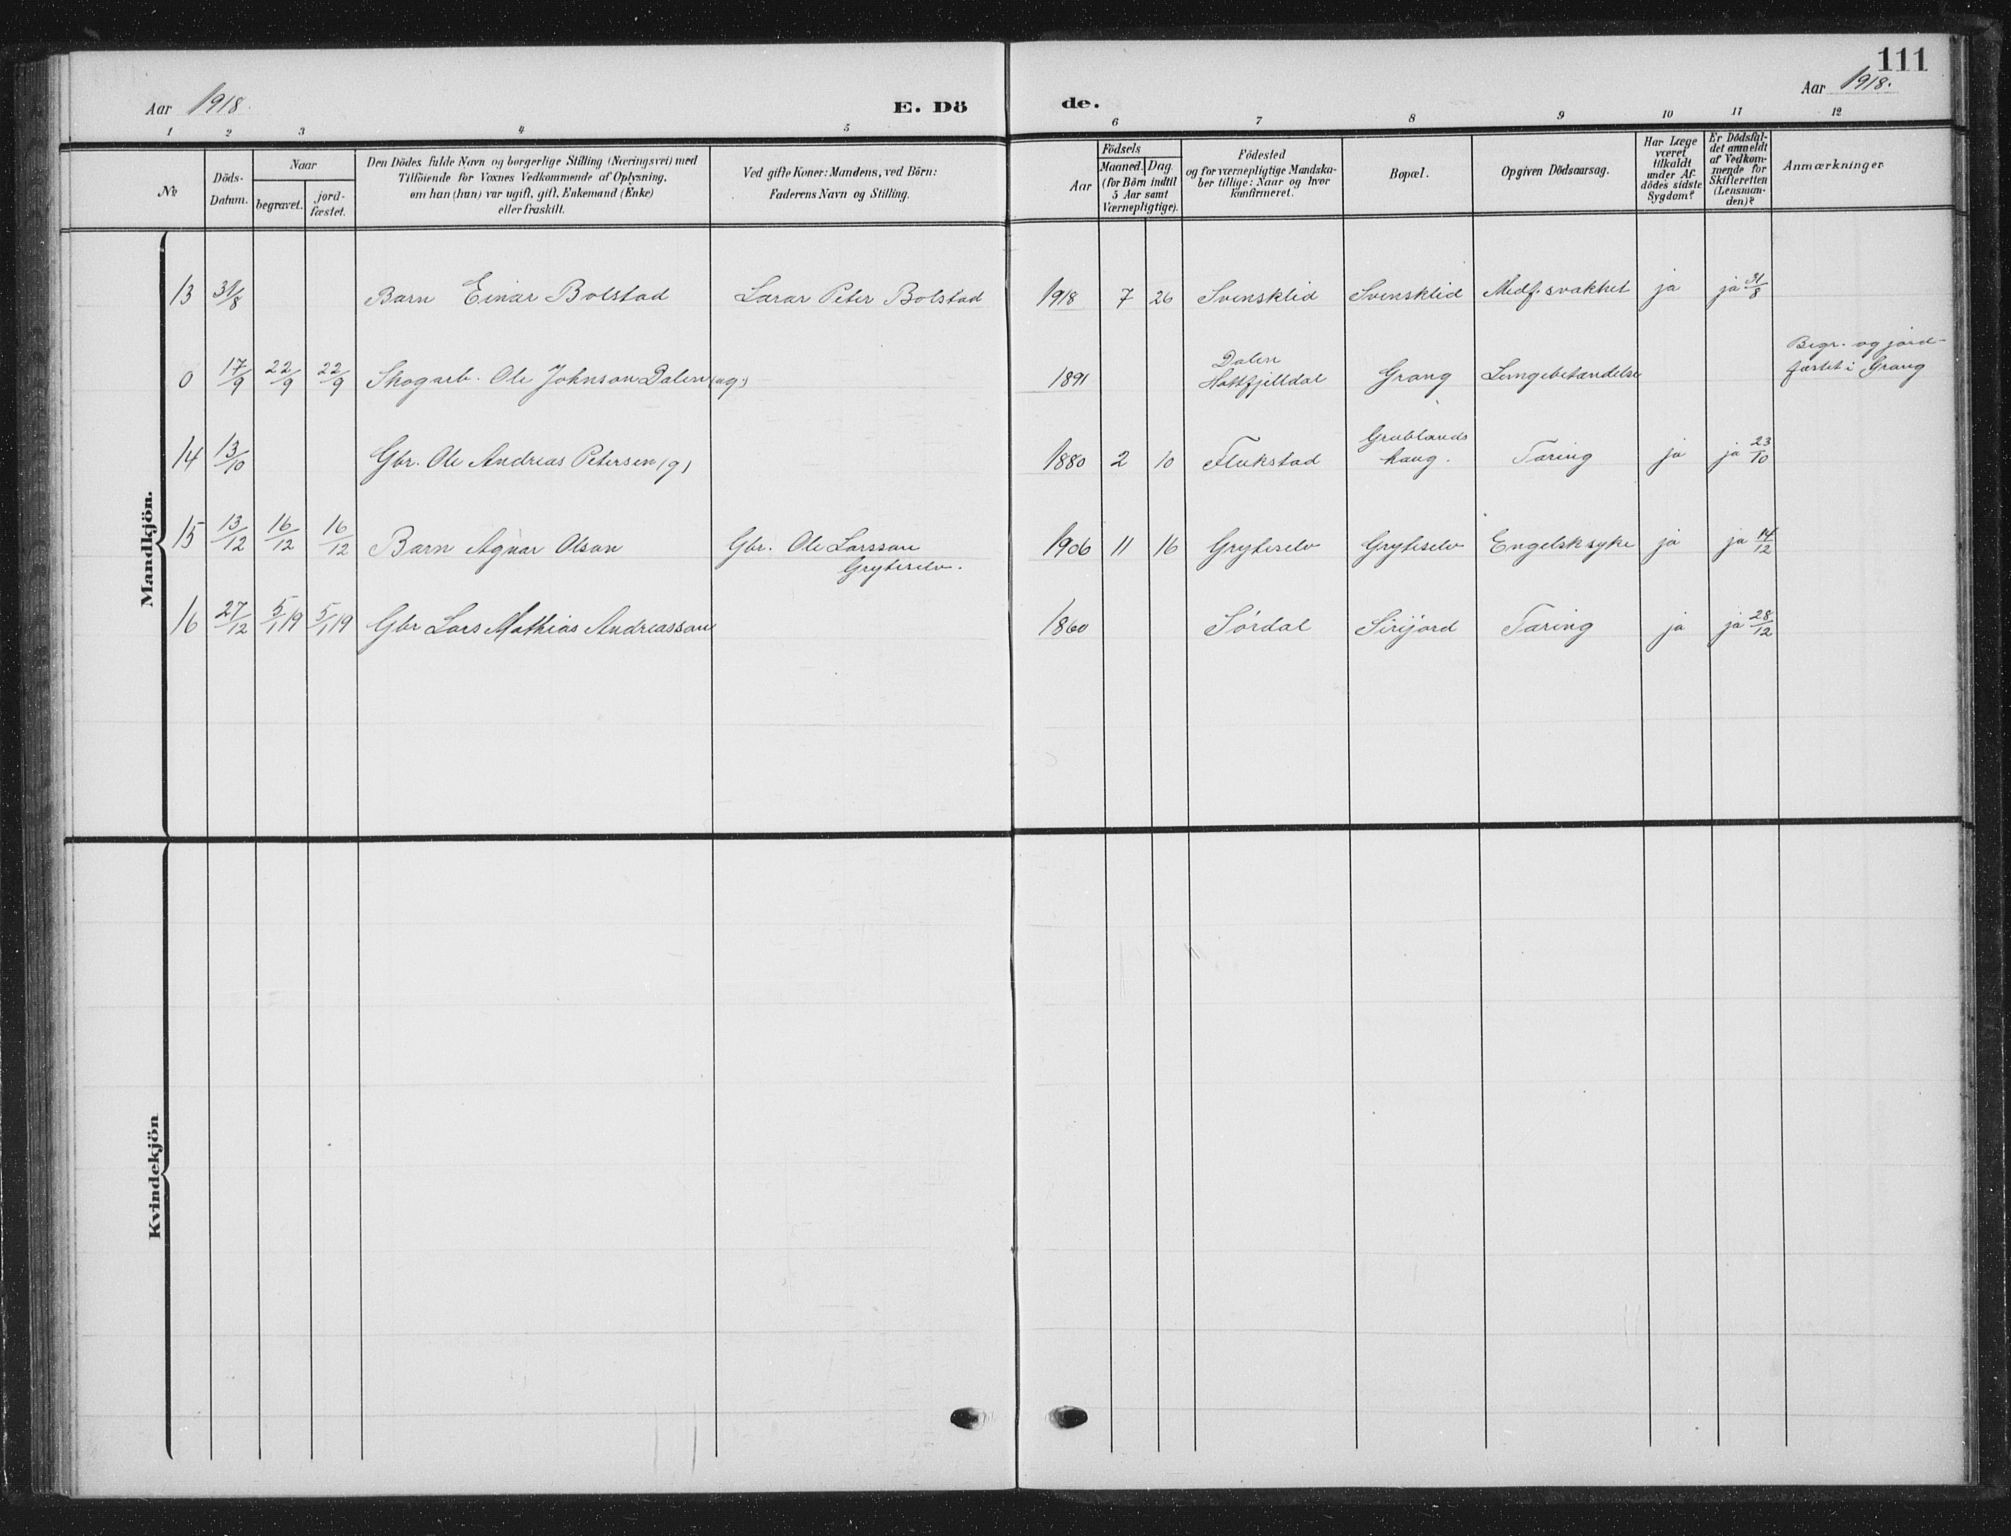 111
Aar 1918.
E. Dö
de.
Aar 1918.
1 2 3 4 5 6 7 8 9 10 11 12
No
Döds-
Datum.
Naar
begravet.
jord-
fæstet.
Den Dödes fulde Navn og borgerlige Stilling (Næringsvei) med
Tilföiende for Voxnes Vedkommende af Oplysning,
om han (hun) var ugift, gift, Enkemand (Enke)
eller fraskilt.
Ved gifte Koner: Mandens, ved Börn:
Faderens Navn og Stilling.
Födsels
Aar
Maaned. Dag
(for Börn indtil
5 Aar samt
Værnepligtige).
Födested
og for værnepligtige Mandska-
ber tillige: Naar og hvor
konfirmeret.
Bopæl.
Opgiven Dödsaarsag.
Har Læge
været
tilkaldt
under Af-
dödes sidste
Sygdom?
Er Dödsfal-
det anmeldt
af Vedkom-
mende for
Skifteretten
(Lensman-
den)?
Anmærkninger
Mandkjön.
13 31/8 Barn Einar Bolstad Lærar Peter Bolstad 1918 7 26 Svensklid Svensklid Medf. svakhet ja ja 31/8
0 17/9 22/9 22/9 Skogarb. Ole Johnson Dalen (ug.) 1891 Dalen
Hattfjelldal Grang Lungebetændelse Begr. og jord-
fæstet i Grang
14 13/10 Gbr. Ole Andreas Petersen (g) 1880 2 10 Flukstad Grublands
haug. Tæring ja ja 23/10
15 13/12 16/12 16/12 Barn Agnar Olson Gbr. Ole Larsson
Gryteselv. 1906 11 16 Gryteselv Gryteselv Engelsk syke ja ja 14/12
16 27/12 5/1 19 5/1 19 Gbr Lars Mathias Andreasson 1860 Sørdal Sirijord Tæring ja ja 28/12
Kvindekjön